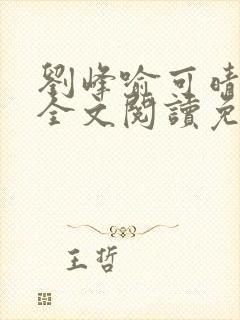 劉峰喻可晴
全文閱讀免
王哲